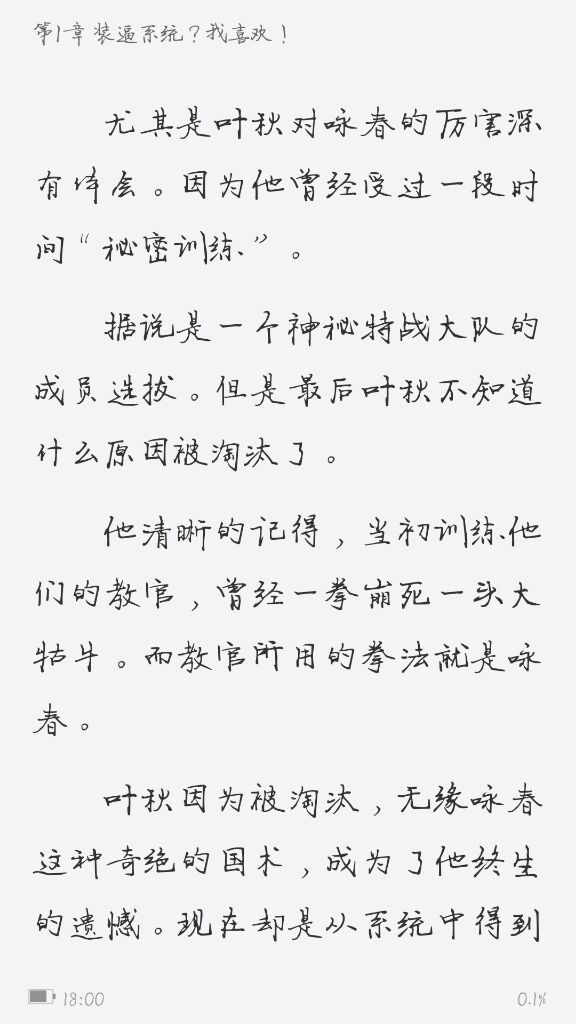 第1章 装逼系统？我喜欢！
尤其是叶秋对咏春的厉害深
有体会。因为他曾经受过一段时
间“秘密训练”。
据说是一个神秘特战大队的
成员选拔。但是最后叶秋不知道
什么原因被淘汰了。
他清晰的记得，当初训练他
们的教官，曾经一拳崩死一头大
牯牛。而教官所用的拳法就是咏
春。
叶秋因为被淘汰，无缘咏春
这种奇绝的国术，成为了他终生
的遗憾。现在却是从系统中得到
18:00
0.1%